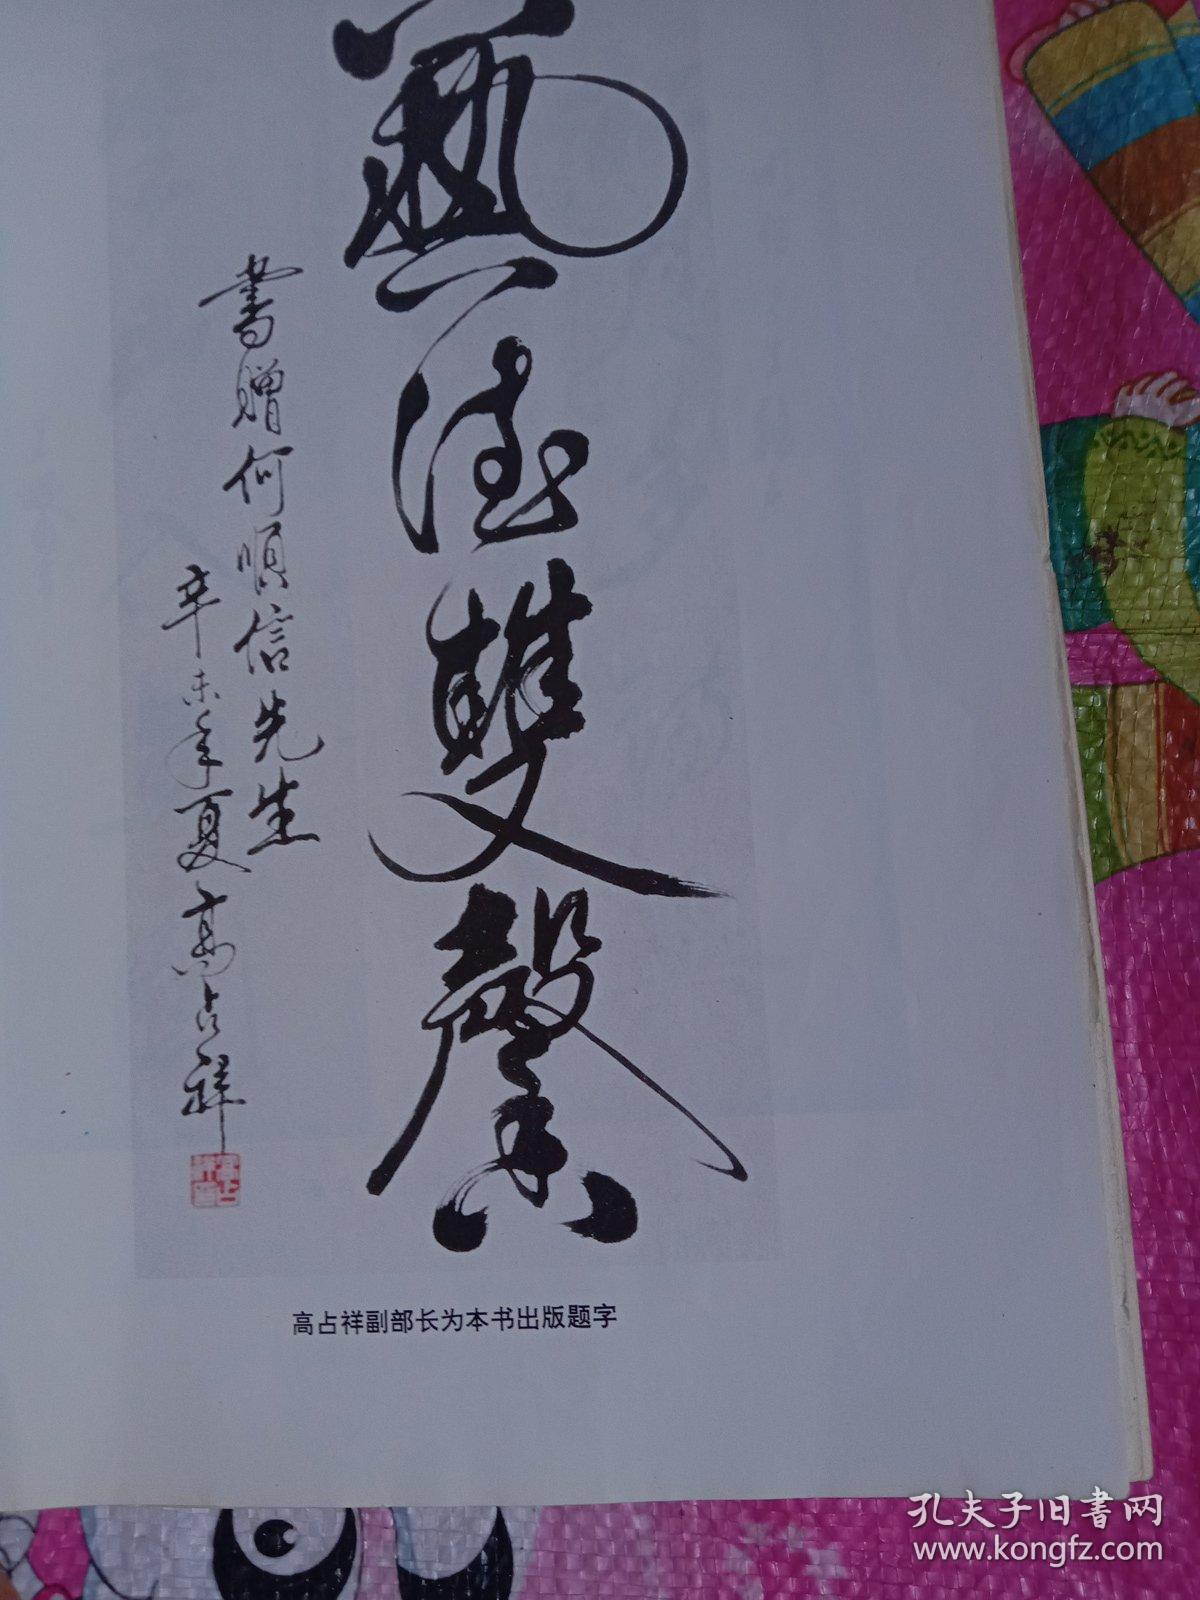 藝德雙馨
書贈何順信先生
辛未年夏高占祥
高占祥副部长为本书出版题字
孔夫子旧書网
www.kongfz.com